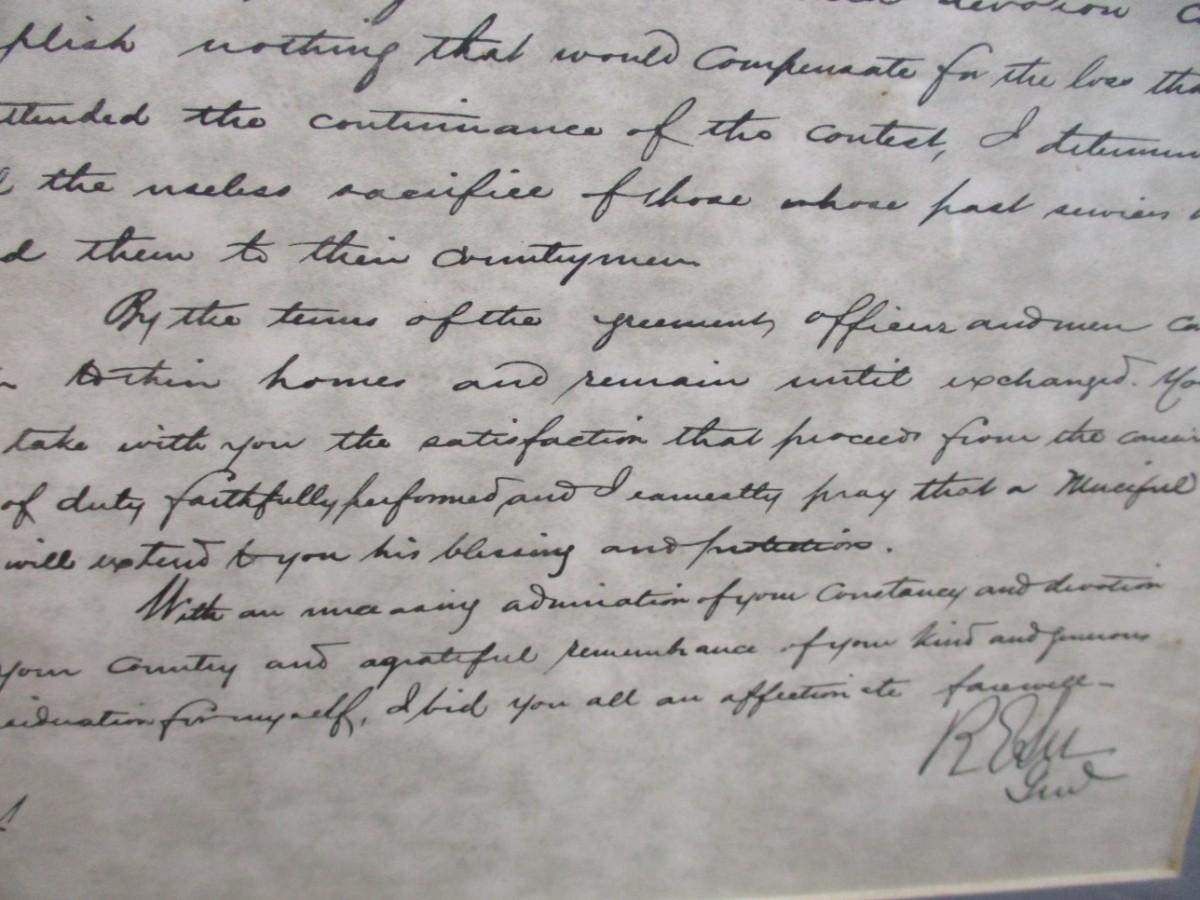 devotion
plish nothing that would compensate for the loss tha
ttended the continuance of the contest, I determin
the useless sacrifice of those whose past services
d them to their countrymen
By the terms of the greement, officers and men ca
n to their homes and remain until exchanged. Yo
take with you the satisfaction that proceeds from the consci
of duty faithfully performed and I earnestly pray that a Merciful
will extend to you his blessing and protection.
With an unceasing admiration of your Constancy and devotion
your Country and a grateful remembrance of your kind and generous
sideration for myself, I bid you all an affectionate farewell—
R E Lee
Genl